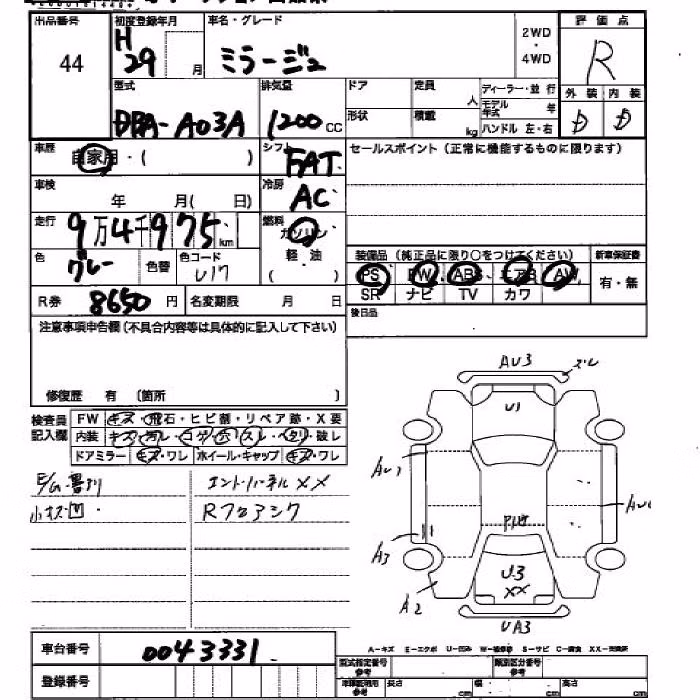 出品番号 初度登録年月 車名・グレード 2WD ・ 4WD 評価点
44 H 29 月 ミラージュ R
型式 排気量 ドア 定員 人 ディーラー・並行 外装 内装
DBA-A03A 1200 CC 形状 積載 kg モデル年式 年 ハンドル 左・右 D D
車歴 自家用・( ) シフト FAT セールスポイント(正常に機能するものに限ります)
車検 年 月( 日) 冷房 AC
走行 9万4千975 km 燃料 ガソリン
色 グレー 色替 色コード U17 軽・油 ( ) 装備品(純正品に限り○をつけてください) 新車保証書
PS PW ABS エアB AW 有・無
R券 8650 円 名変期限 月 日 SR ナビ TV カワ
後日品
注意事項申告欄(不具合内容等は具体的に記入して下さい)
修復歴 有 〔箇所 〕
検査員記入欄 FW キズ・飛石・ヒビ割・リペア跡・X要
内装 キズ・汚レ・コゲ・穴・スレ・ヘタリ・破レ
ドアミラー キズ・ワレ ホイール・キャップ キズ・ワレ
小キズ凹 Rフロアシク
エンドパネルXX
AU3 ズレ
U1
AU1
A3
A2
U3
XX
UA3
車台番号 0043331
登録番号
A-キズ E-エクボ U-凹み W-補修跡 S-サビ C-腐食 XX-交換済
型式指定番号 参考 類別区分番号 参考
長さ cm 幅 cm 高さ cm